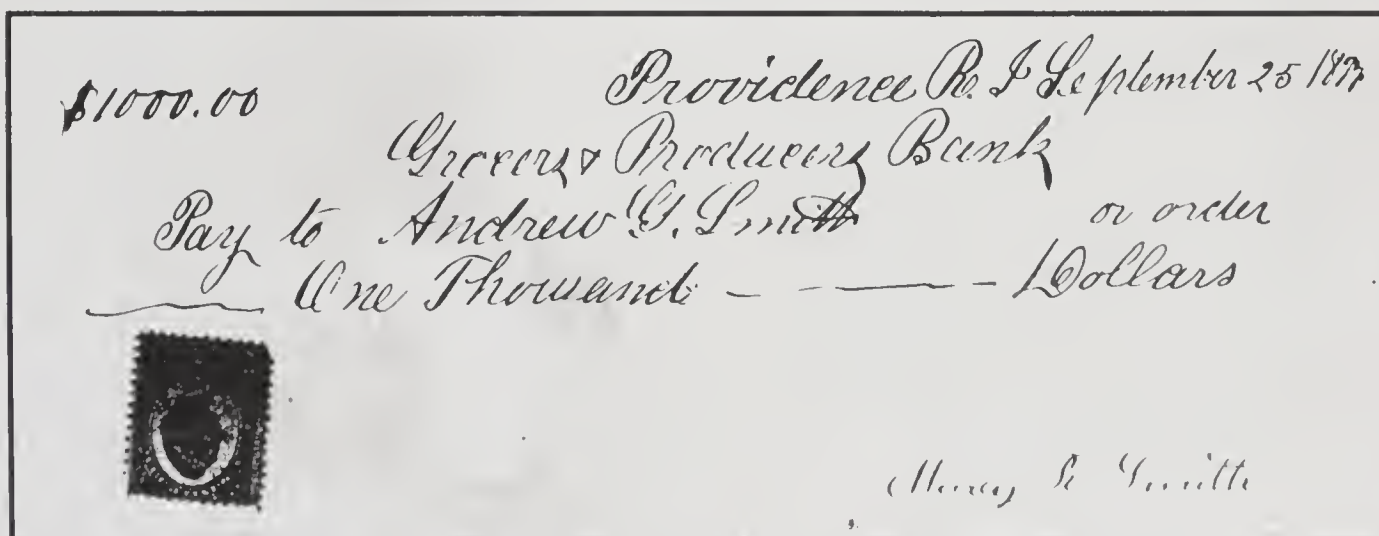 $1000.00 Providence R. I September 25
Grocers & Producers Bank
Pay to Andrew G. Smith or order
One Thousand Dollars
Smith